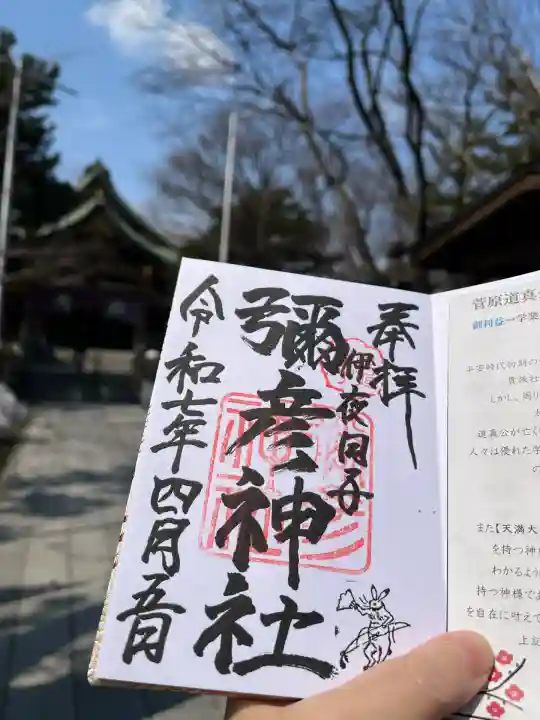 奉拝
伊夜日子
彌彦神社
令和七年四月五日
菅原道真
御利益－学業
平安時代初期の
貴族社
しかし、周り
道真公が亡く
人々は優れた学
の
また【天満大
を持つ神
わかるよう
持つ神様であ
を自在に叶えて
上記